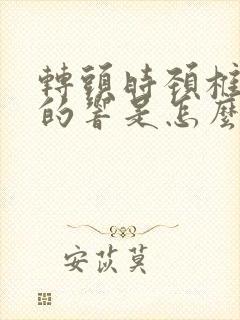 轉頭時頚椎
的響是怎麼
安苡莫